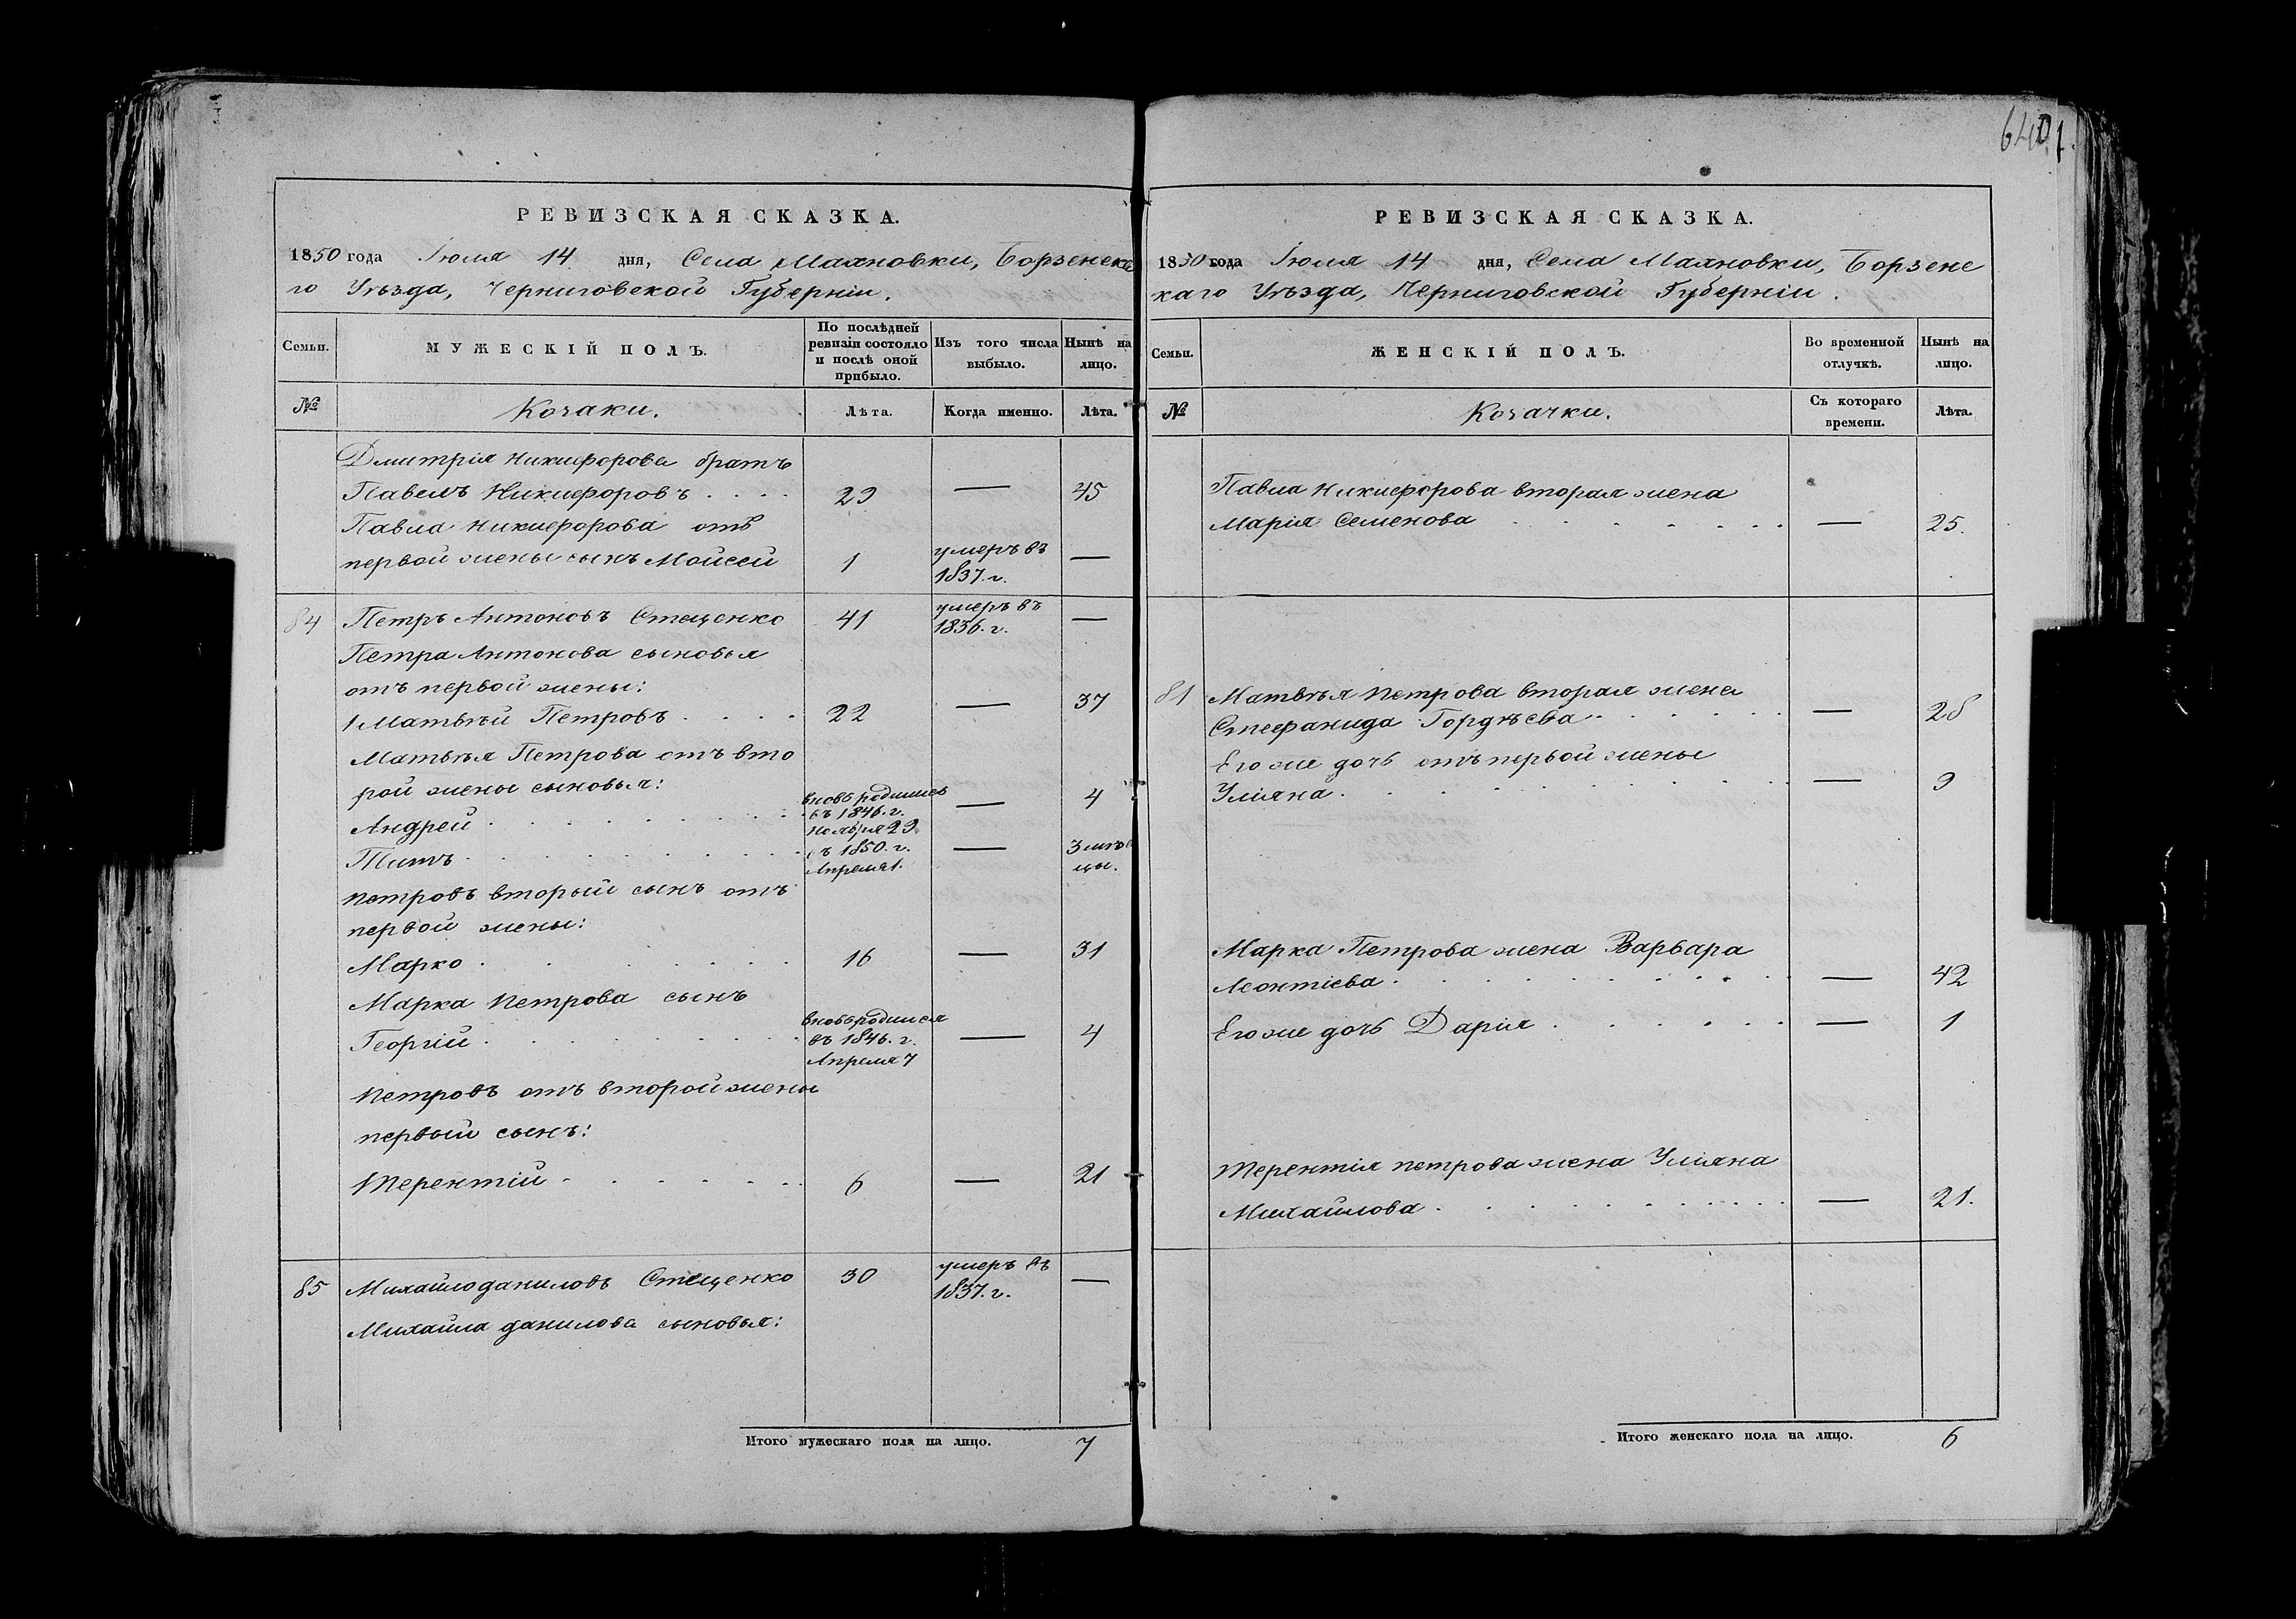 640 1.
РЕВИЗСКАЯ СКАЗКА.
1850 года Іюля 14 дня, Села Маяновки, Борзенска
го Уѣзда, Черниговской Губерніи.
Семьи.
МУЖЕСКІЙ ПОЛЪ.
По послѣдней ревизіи состояло и послѣ оной прибыло.
Изъ того числа выбыло.
Нынѣ на лицо.
№
Козаки.
Лѣта.
Когда именно.
Лѣта.
Дмитрія Никифорова братъ
Павелъ Никифоровъ . . . . 29 — 45
Павла Никифорова отъ
первой жены сынъ Мойсей 1 умеръ въ 1837. г. —
84 Петръ Антоновъ Стеценко 41 умеръ въ 1836. г. —
Петра Антонова сыновья
отъ первой жены:
1 Матвѣй Петровъ . . . . 22 — 37
Матвѣя Петрова отъ вто
рой жены сыновья:
Андрей . . . . . . . вновь родились въ 1846. г. Ноября 29. — 4
Титъ . . . . . . . въ 1850. г. Апреля 1. — 3 мѣся цы.
Петровъ вторый сынъ отъ
первой жены:
Марко . . . . . . . 16 — 31
Марка Петрова сынъ
Георгій . . . . . . . вновь родился въ 1846. г. Апреля 7 — 4
Петровъ отъ второй жены
первый сынъ:
Терентій . . . . . . . 6 — 21
85 Михайло Даниловъ Стеценко 30 умеръ въ 1837. г. —
Михайла Данилова сыновья:
Итого мужескаго пола на лицо. 7
РЕВИЗСКАЯ СКАЗКА.
1850 года Іюля 14 дня, Села Маяновки, Борзенс
каго Уѣзда, Черниговской Губерніи.
Семьи.
ЖЕНСКІЙ ПОЛЪ.
Во временной отлучкѣ.
Нынѣ на лицо.
№
Козачки.
Съ котораго времени.
Лѣта.
Павла Никифорова вторая жена
Марія Семенова . . . . . . . — 25.
81 Матвѣя Петрова вторая жена
Стефанида Гордѣева . . . . . . — 28
Его же дочь отъ первой жены
Уліяна . . . . . . . — 9
Марка Петрова жена Варвара
Леонтіева . . . . . . . — 42
Его же дочь Дарія . . . . . — 1
Терентія Петрова жена Уліяна
Михайлова . . . . . . . — 21.
Итого женскаго пола на лицо. 6